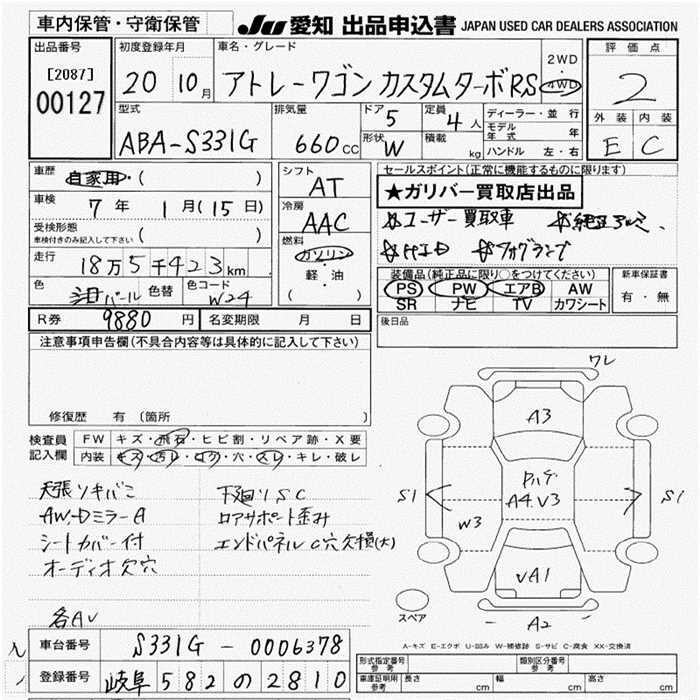 車内保管・守衛保管
JU 愛知 出品申込書 JAPAN USED CAR DEALERS ASSOCIATION
出品番号
[2087]
00127
初度登録年月
20 10月
車名・グレード
アトレーワゴン カスタムターボRS
2WD
・
4WD
評価点
2
外装 内装
E C
型式
ABA-S331G
排気量
660cc
ドア 5
形状 W
定員 4人
積載 kg
ディーラー・並行
モデル年式 年
ハンドル 左・右
車歴 自家用・( )
車検 7年 1月(15日)
受検形態
車検付きのみ記入して下さい ( )
走行 18万5千423km
色 パール 色替 色コード W24
シフト AT
冷房 AAC
燃料
ガソリン
・
軽・油
( )
セールスポイント(正常に機能するものに限ります)
★ガリバー買取店出品
ユーザー買取車 純正アルミ、
フォグランプ
装備品(純正品に限り○をつけてください)
PS PW エアB AW
SR ナビ TV カワシート
新車保証書
有・無
後日品
R券 9880円 名変期限 月 日
注意事項申告欄(不具合内容等は具体的に記入して下さい)
修復歴 有(箇所
検査員記入欄
FW キズ・飛石・ヒビ割・リペア跡・X要
内装 キズ・汚レ・コゲ・穴・スレ・キレ・破レ
天張ソキバミ
AW・Dミラー A
シートカバー付
オーディオ欠穴
各AU
下廻りSC
ロアサポート歪み
エンドパネルC穴欠損(大)
ワレ
A3
S1
S1
A4.V3
W3
VA1
A2
スペア
A-キズ E-エクボ U-凹み W-補修跡 S-サビ C-腐食 XX-交換済
車台番号 S331G-0006378
登録番号 岐阜582の2810
形式指定番号 参考
類別区分番号 参考
車庫証明用 参考 長さ cm 幅 cm 高さ cm